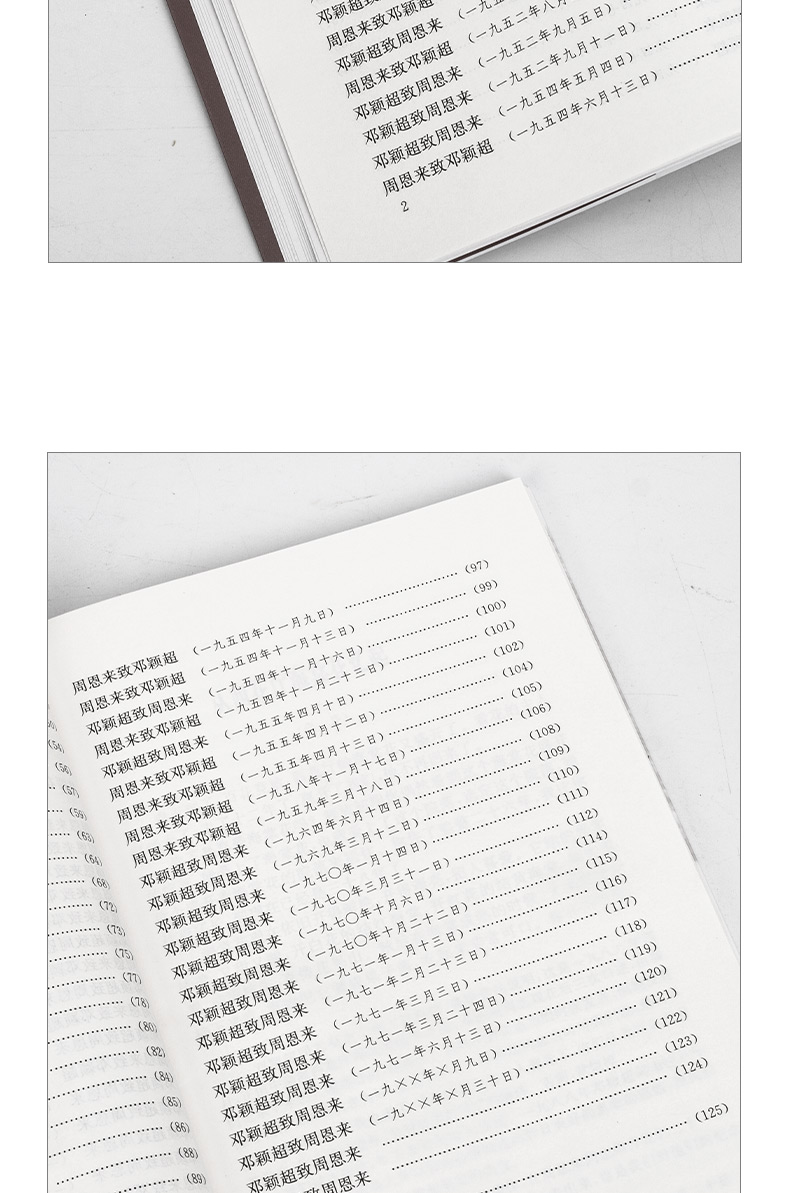 邓颖超致周恩来
周恩来致邓颖超
邓颖超致周恩来 （一九五
周恩来致邓颖超 （一九五二年八月
邓颖超致周恩来 （一九五二年九月五日）
邓颖超致周恩来 （一九五二年九月十一日）
邓颖超致周恩来 （一九五四年五月四日）
周恩来致邓颖超 （一九五四年六月十三日）
2
(54)
(56)
(57)
(59)
(63)
(64)
(68)
(72)
(73)
(75)
(77)
(78)
(80)
(82)
(84)
(85)
(86)
(88)
(89)
周恩来致邓颖超 （一九五四年十一月九日） (97)
周恩来致邓颖超 （一九五四年十一月十三日） (99)
邓颖超致周恩来 （一九五四年十一月十六日） (100)
周恩来致邓颖超 （一九五四年十一月二十三日） (101)
邓颖超致周恩来 （一九五五年四月十日） (102)
周恩来致邓颖超 （一九五五年四月十二日） (104)
周恩来致邓颖超 （一九五五年四月十三日） (105)
周恩来致邓颖超 （一九五八年十一月十七日） (106)
周恩来致邓颖超 （一九五九年三月十八日） (108)
邓颖超致周恩来 （一九六四年六月十四日） (109)
邓颖超致周恩来 （一九六九年三月十二日） (110)
邓颖超致周恩来 （一九七〇年一月十四日） (111)
邓颖超致周恩来 （一九七〇年三月三十一日） (112)
邓颖超致周恩来 （一九七〇年十月六日） (114)
邓颖超致周恩来 （一九七〇年十月二十二日） (115)
邓颖超致周恩来 （一九七一年一月十三日） (116)
邓颖超致周恩来 （一九七一年二月二十三日） (117)
邓颖超致周恩来 （一九七一年三月三日） (118)
邓颖超致周恩来 （一九七一年三月二十四日） (119)
邓颖超致周恩来 （一九七一年六月十三日） (120)
邓颖超致周恩来 （一九××年×月九日） (121)
邓颖超致周恩来 （一九××年×月三十日） (122)
邓颖超致周恩来 (123)
邓颖超致周恩来 (124)
(125)